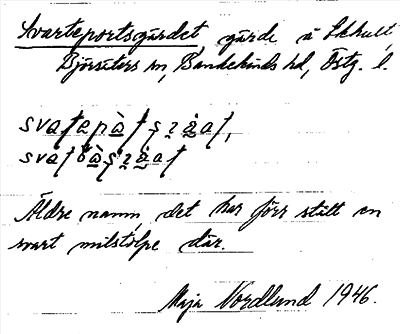 Svarteportsgärdet, gärde å Ekhult,
Björsäters sn, Bankekinds hd, Östg. l.
Äldre namn, det har förr stått en
svart milstolpe där.
Maja Nordlund 1946.